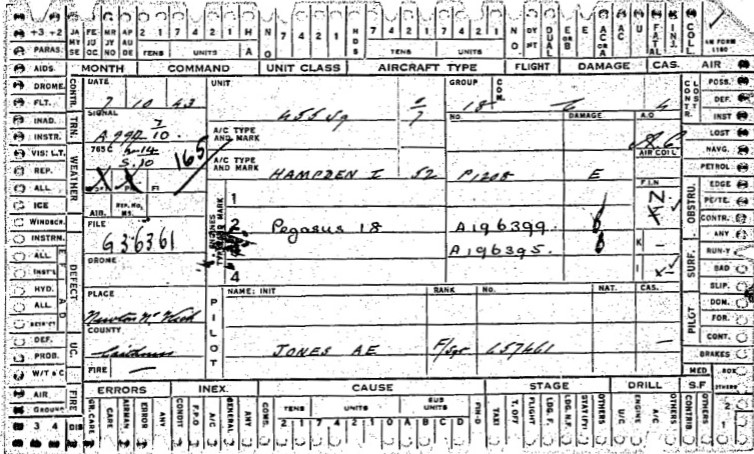 +3 +2 JA MY SE FE JU OC MR JY NO AP AU DE 2 1 7 4 2 1 H A N O 7 4 2 1 N D S 7 4 2 1 7 4 2 1 N O DUAL E OR B E AC OR A AC U FATAL INJ. COLL
PARAS. TENS UNITS TENS UNITS AM FORM 1180
AIDS. MONTH COMMAND UNIT CLASS AIRCRAFT TYPE FLIGHT DAMAGE CAS. AIR
DROME. CONTR. DATE UNIT GROUP COM. CONTR LOST POSS.
FLT. 7 10 43 455 Sq 18 C 4 DEF.
INAD. TRN. SIGNAL NO. DAMAGE A.O INST
INSTR. A992 7/10. A/C TYPE AND MARK LOST
VIS: L.T. 765C 2-14 AIR COLL NAVG.
REP. WEATHER 5.10 165 A/C TYPE AND MARK HAMPDEN I 52 P1208 E PETROL
ALL F.I.N EDGE
ICE AIR. REP. NO. MS. 1 OBSTRU. PE/TE.
WINDSCR. FILE ENGINES TYPE AND MARK 2 Pegasus 18 A196399. CONTR.
INSTRN. G36361 A196395. K — ANY
ALL DEFECT DROME SURF. RUN-Y
INST'L 4 I BAD
HYD. PLACE NAME: INIT RANK No. NAT. CAS. SLIP.
ALL Newton Nr Wick PILOT PILOT DOM.
COUNTY FOR.
DEF. UC. Caithness JONES AE F/Sgt 657461 — CONT.
PROB. FIRE — BRAKES
W/T & C MED BOX OTHERS
AIR FIRE ERRORS INEX. CAUSE STAGE DRILL S.F
GROUND GR. CARE CARE AIRMAN ERROR ANY CONDIT F.P.O A/C GENERAL ANY COMD. TENS UNITS SUB UNITS TAXI T. OFF FLIGHT LDG. F. LDG. R.F. STAT(PY) OTHERS U/C ENGINE A/C OTHERS CONTRIB. OTHERS 2
3 4 DIS 2 1 7 4 2 1 0 A B C D 1